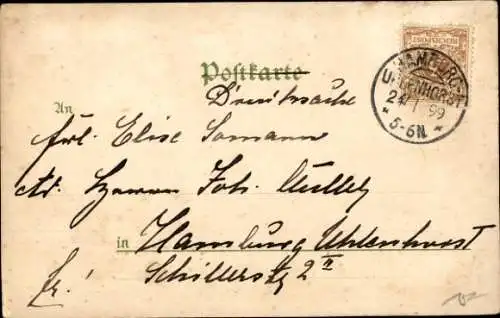 REICHSPOST
HAMBURG
UHLENHORST
24/1 99
* 5-6N. *
Postkarte
Drucksache
An
Frl. Elise Somann
Ad. Herrn Joh. Müller
in Hamburg Uhlenhorst
Schillerstr 2 II
fr!